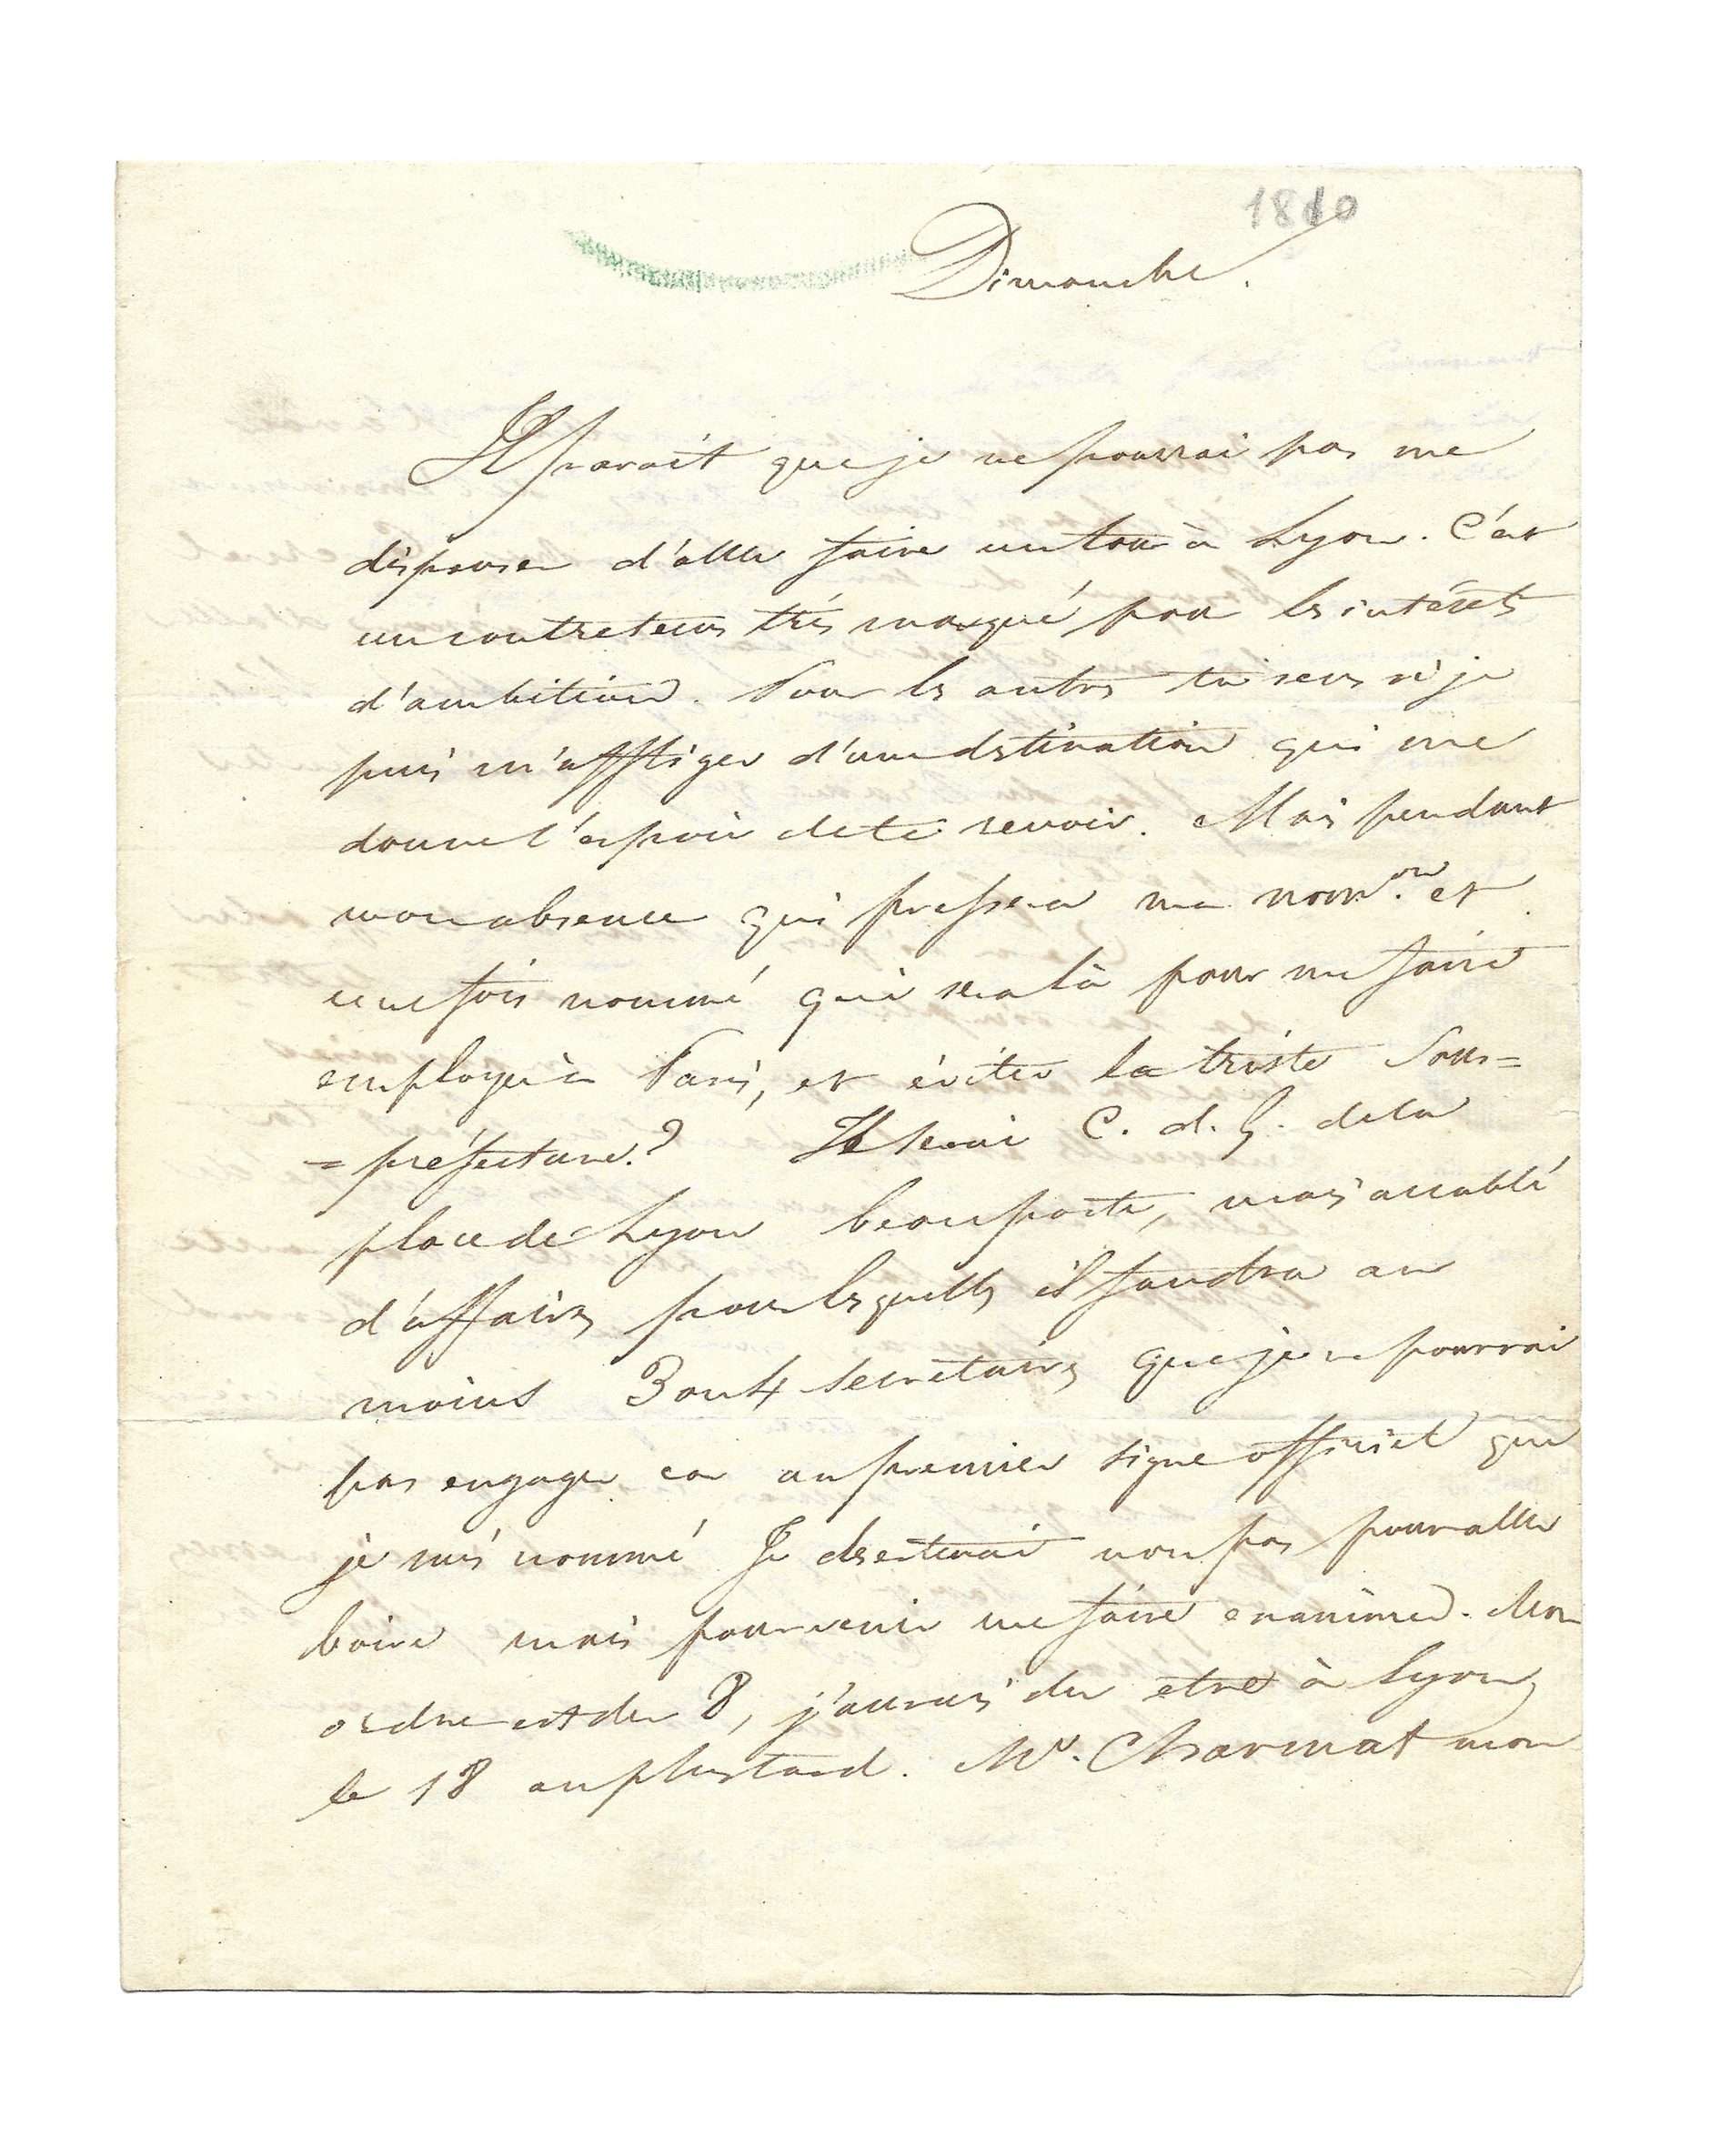 1810
Dimanche.
Il parait que je ne pourrai pas me
dispenser d'aller faire un tour à Lyon. C'est
un contretems très marqué pour les intérêts
d'ambition. Pour les autres tu sens si je
puis m'affliger d'une destination qui me
donne l'espoir de te revoir. Mais pendant
mon absence qui pressera ma nom.on et
une fois nommé qui sera là pour me faire
employer à Paris, et éviter la triste Sous=
=préfecture? Je serai C. d. G. de la
place de Lyon beau poste, mais accablé
d'affaires pour lesquelles il faudra au
moins 3 ou 4 secretaires que je ne pourrai
pas engager car au premier signe officiel que
je suis nommé Je deserterai non pas pour aller
boire mais pour venir me faire examiner. Mon
ordre est du 8, j'aurais du etre à Lyon
le 18 au plus tard. Mr. Charmat mon